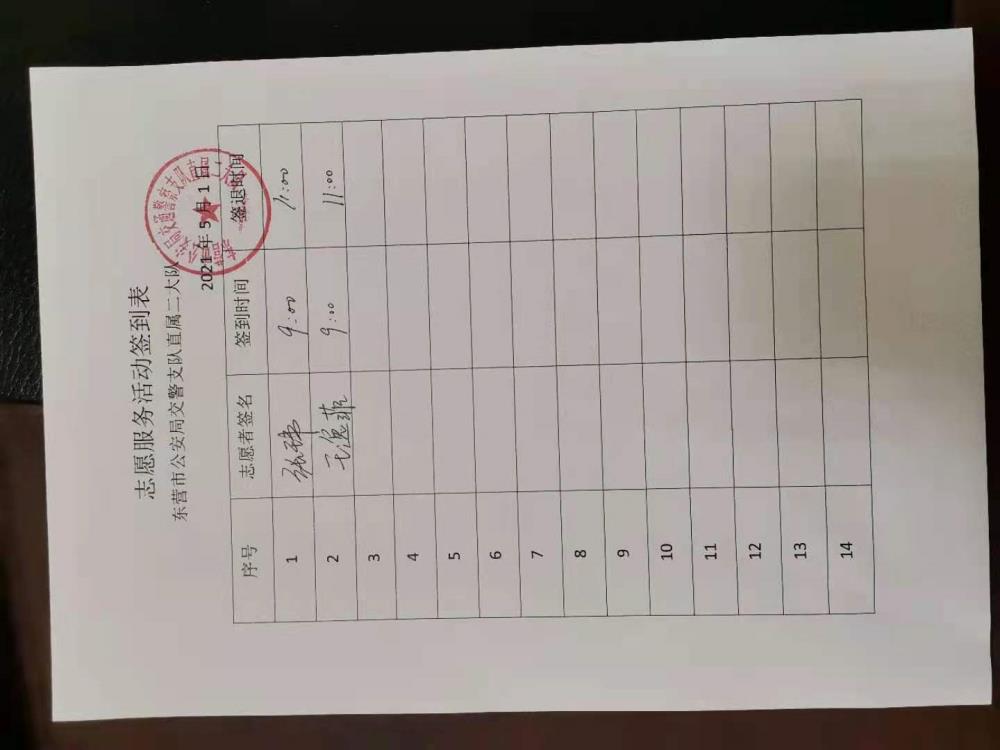 志愿服务活动签到表
东营市公安局交警支队直属二大队
2021年5月1日
序号 志愿者签名 签到时间 签退时间
1 张琳 9:00 11:00
2 王逸菲 9:00 11:00
3
4
5
6
7
8
9
10
11
12
13
14